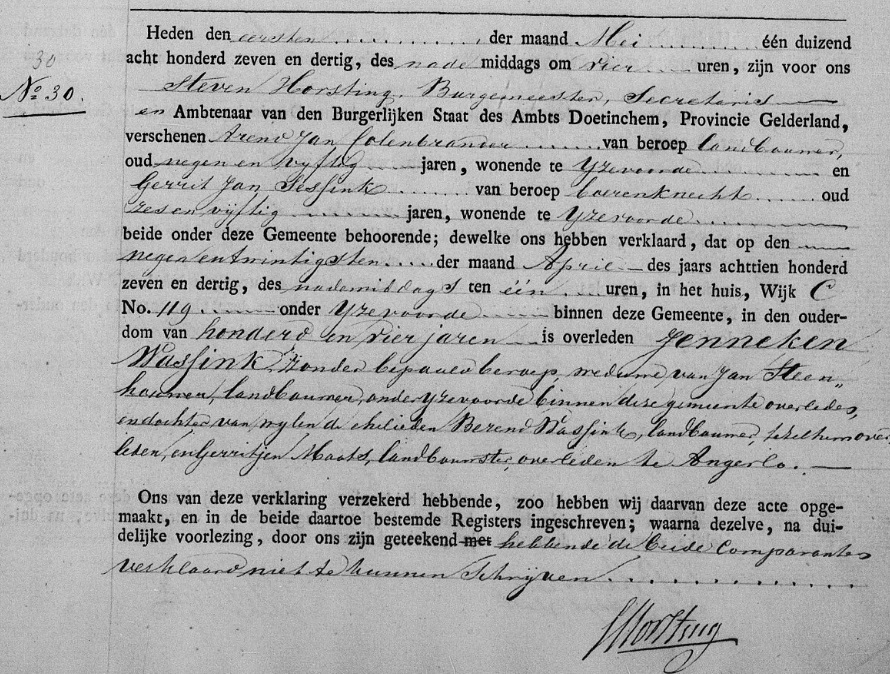 Heden den eersten der maand Mei één duizend
30
acht honderd zeven en dertig, des nade middags om vier uren, zijn voor ons
No. 30.
Steven Horsting, Burgemeester, Secretaris
en Ambtenaar van den Burgerlijken Staat des Ambts Doetinchem, Provincie Gelderland,
verschenen Arend Jan Colenbrander van beroep landbouwer,
oud negen en vyftig jaren, wonende te Yzevoorde en
Gerrit Jan Sessink van beroep boerenknecht oud
zes en vyftig jaren, wonende te Yzevoorde
beide onder deze Gemeente behoorende; dewelke ons hebben verklaard, dat op den
negenentwintigsten der maand April des jaars achttien honderd
zeven en dertig, des nademiddags ten één uren, in het huis, Wijk C
No. 119 onder Yzevoorde binnen deze Gemeente, in den ouder-
dom van honderd en vier jaren is overleden Jenneken
Wassink, zonder bepaald beroep, weduwe van Jan Steen„
houwer, landbouwer, onder Yzevoorde binnen dese gemeente overleden,
en dochter van wylen de ehelieden Berend Wassink, landbouwer, te Kelhem over„
leden, en Gerritjen Maats, landbouwster, overleden te Angerlo.
Ons van deze verklaring verzekerd hebbende, zoo hebben wij daarvan deze acte opge-
maakt, en in de beide daartoe bestemde Registers ingeschreven; waarna dezelve, na dui-
delijke voorlezing, door ons zijn geteekend met hebbende de beide Comparanten
verklaard niet te kunnen Schrijven.
SHorsting